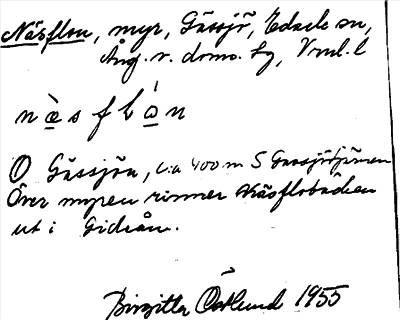 Näsflon, myr, Gåssjö, Edsele sn,
Ång. v. doms. tg, Vnml. l
næ̀sflɷ́n
O Gåssjön, c:a 400 m S Gåssjötjärnen
Över myren rinner Näsflobäcken
ut i Gideån.
Birgitta Östlund 1955